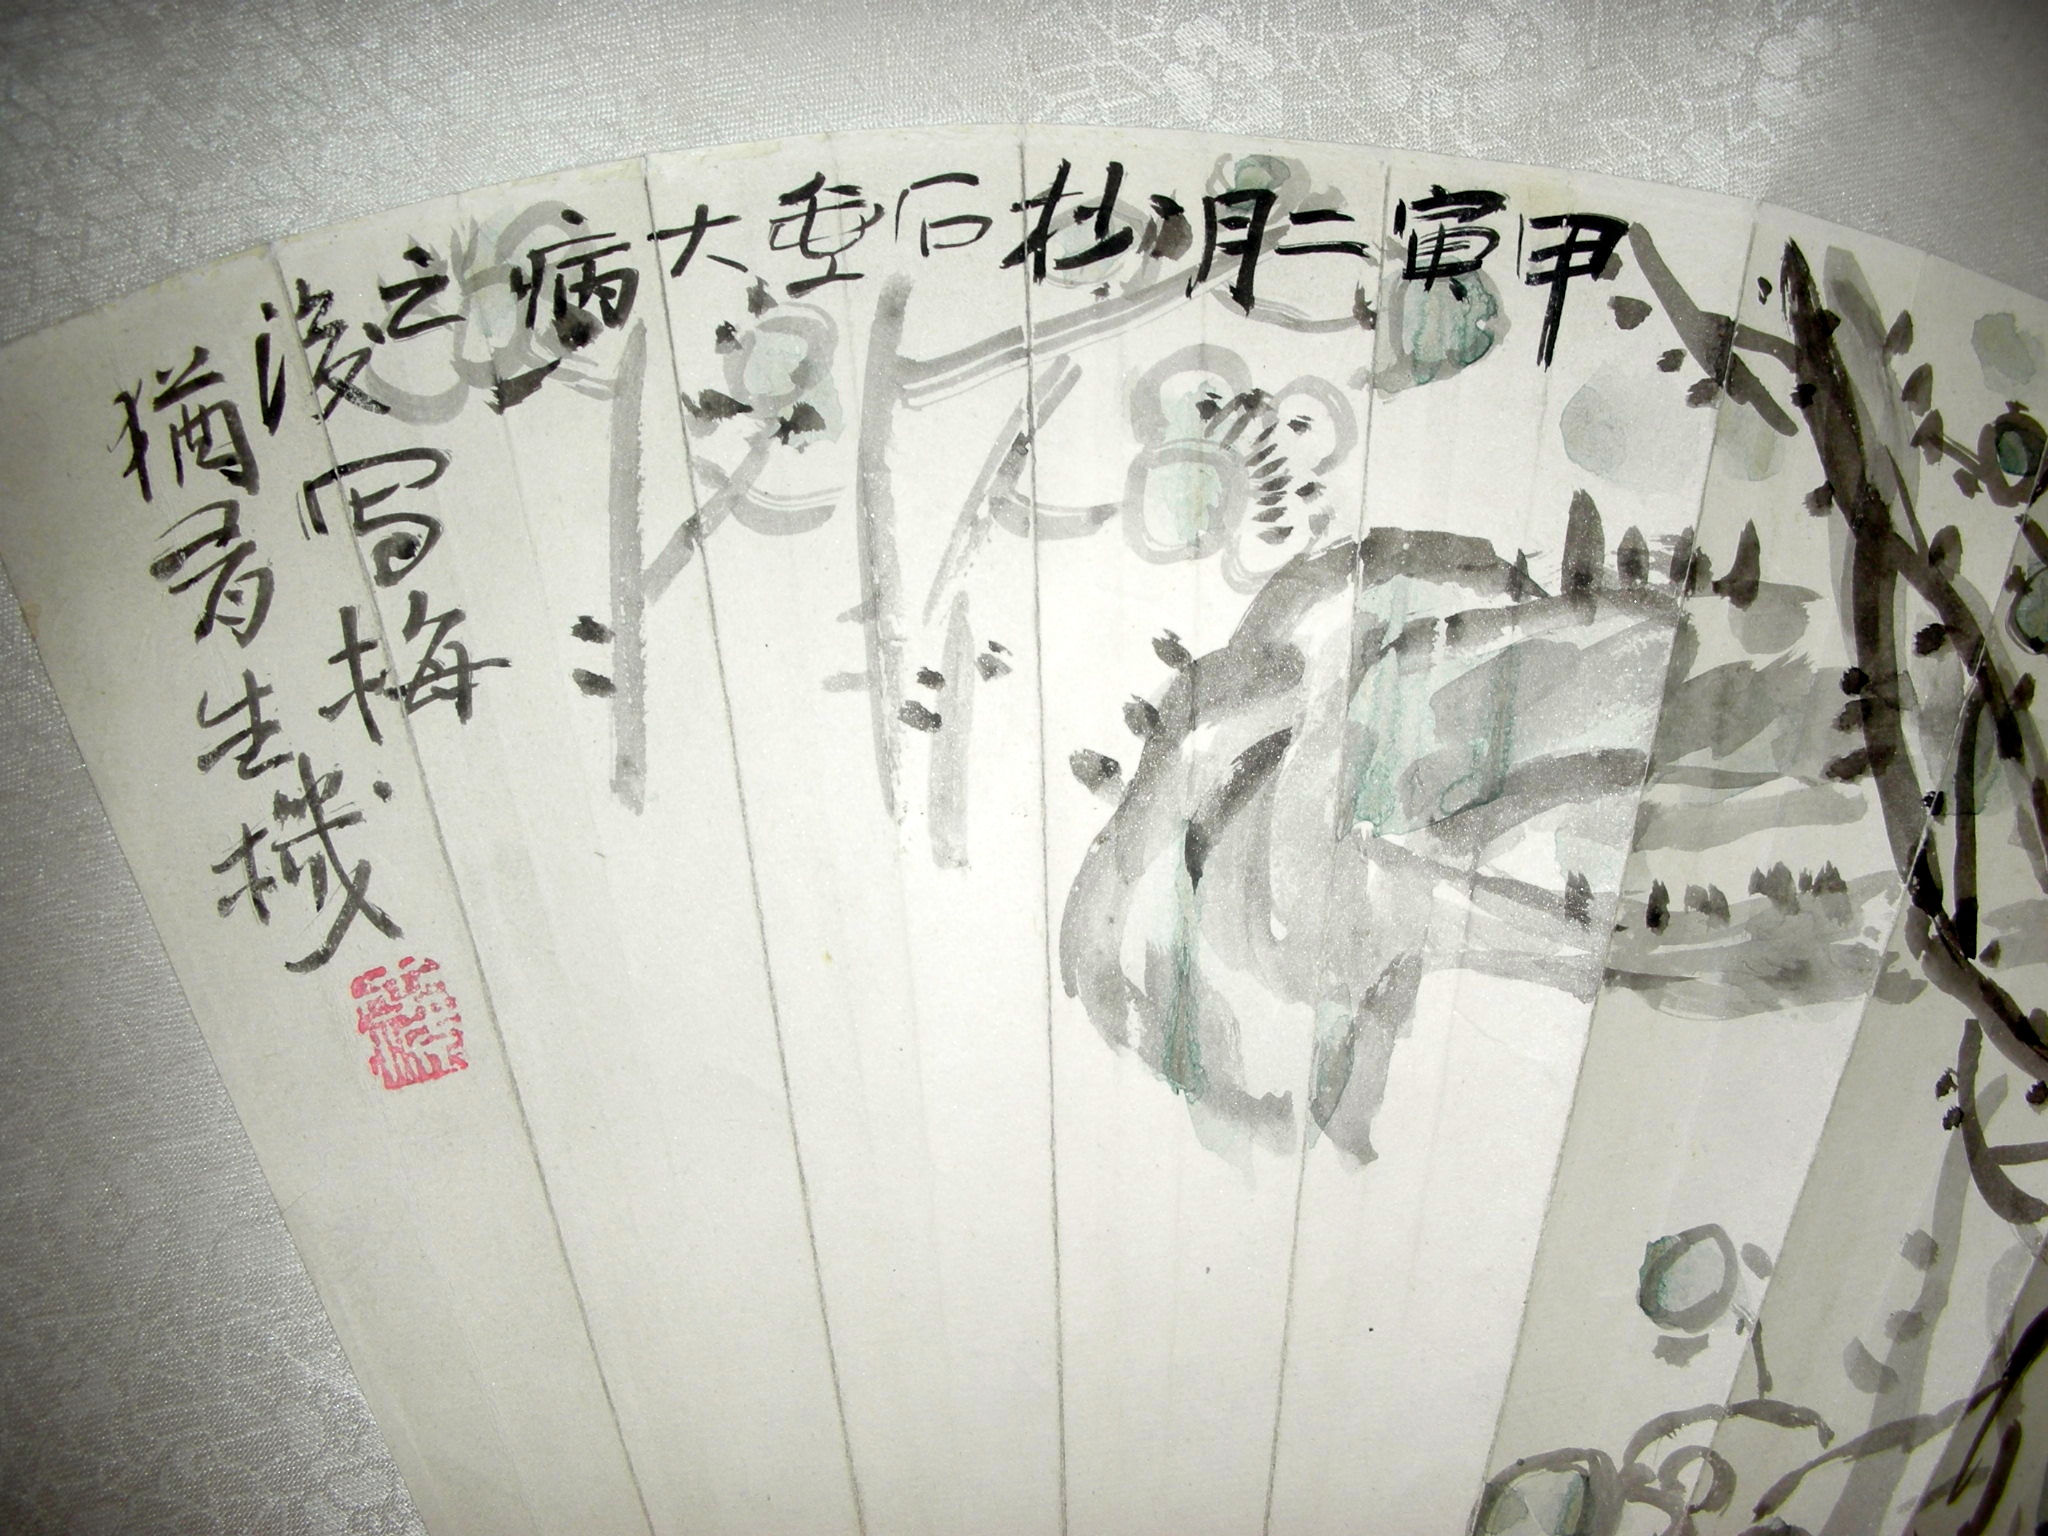 甲寅二月杪石壶大病之後写梅
猶有生機